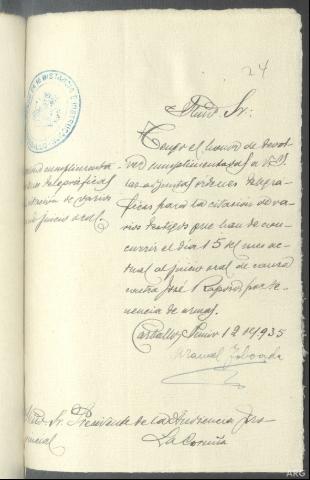 24
Iltmo. Sr:
Tengo el honor de devol-
ver cumplimentadas a V.S.I.
las adjuntas órdenes telegrá-
ficas para la citación de va-
rios testigos que han de con-
currir el día 15 del mes ac-
tual al juicio oral de causa
contra José Raposo por te-
nencia de armas.
Carballo, Junio 12 1935
cumplimenta
telegráficas
citación de varios
juicio oral.
Iltmo. Sr. Presidente de la Audiencia Pro-
vincial
La Coruña
ARG